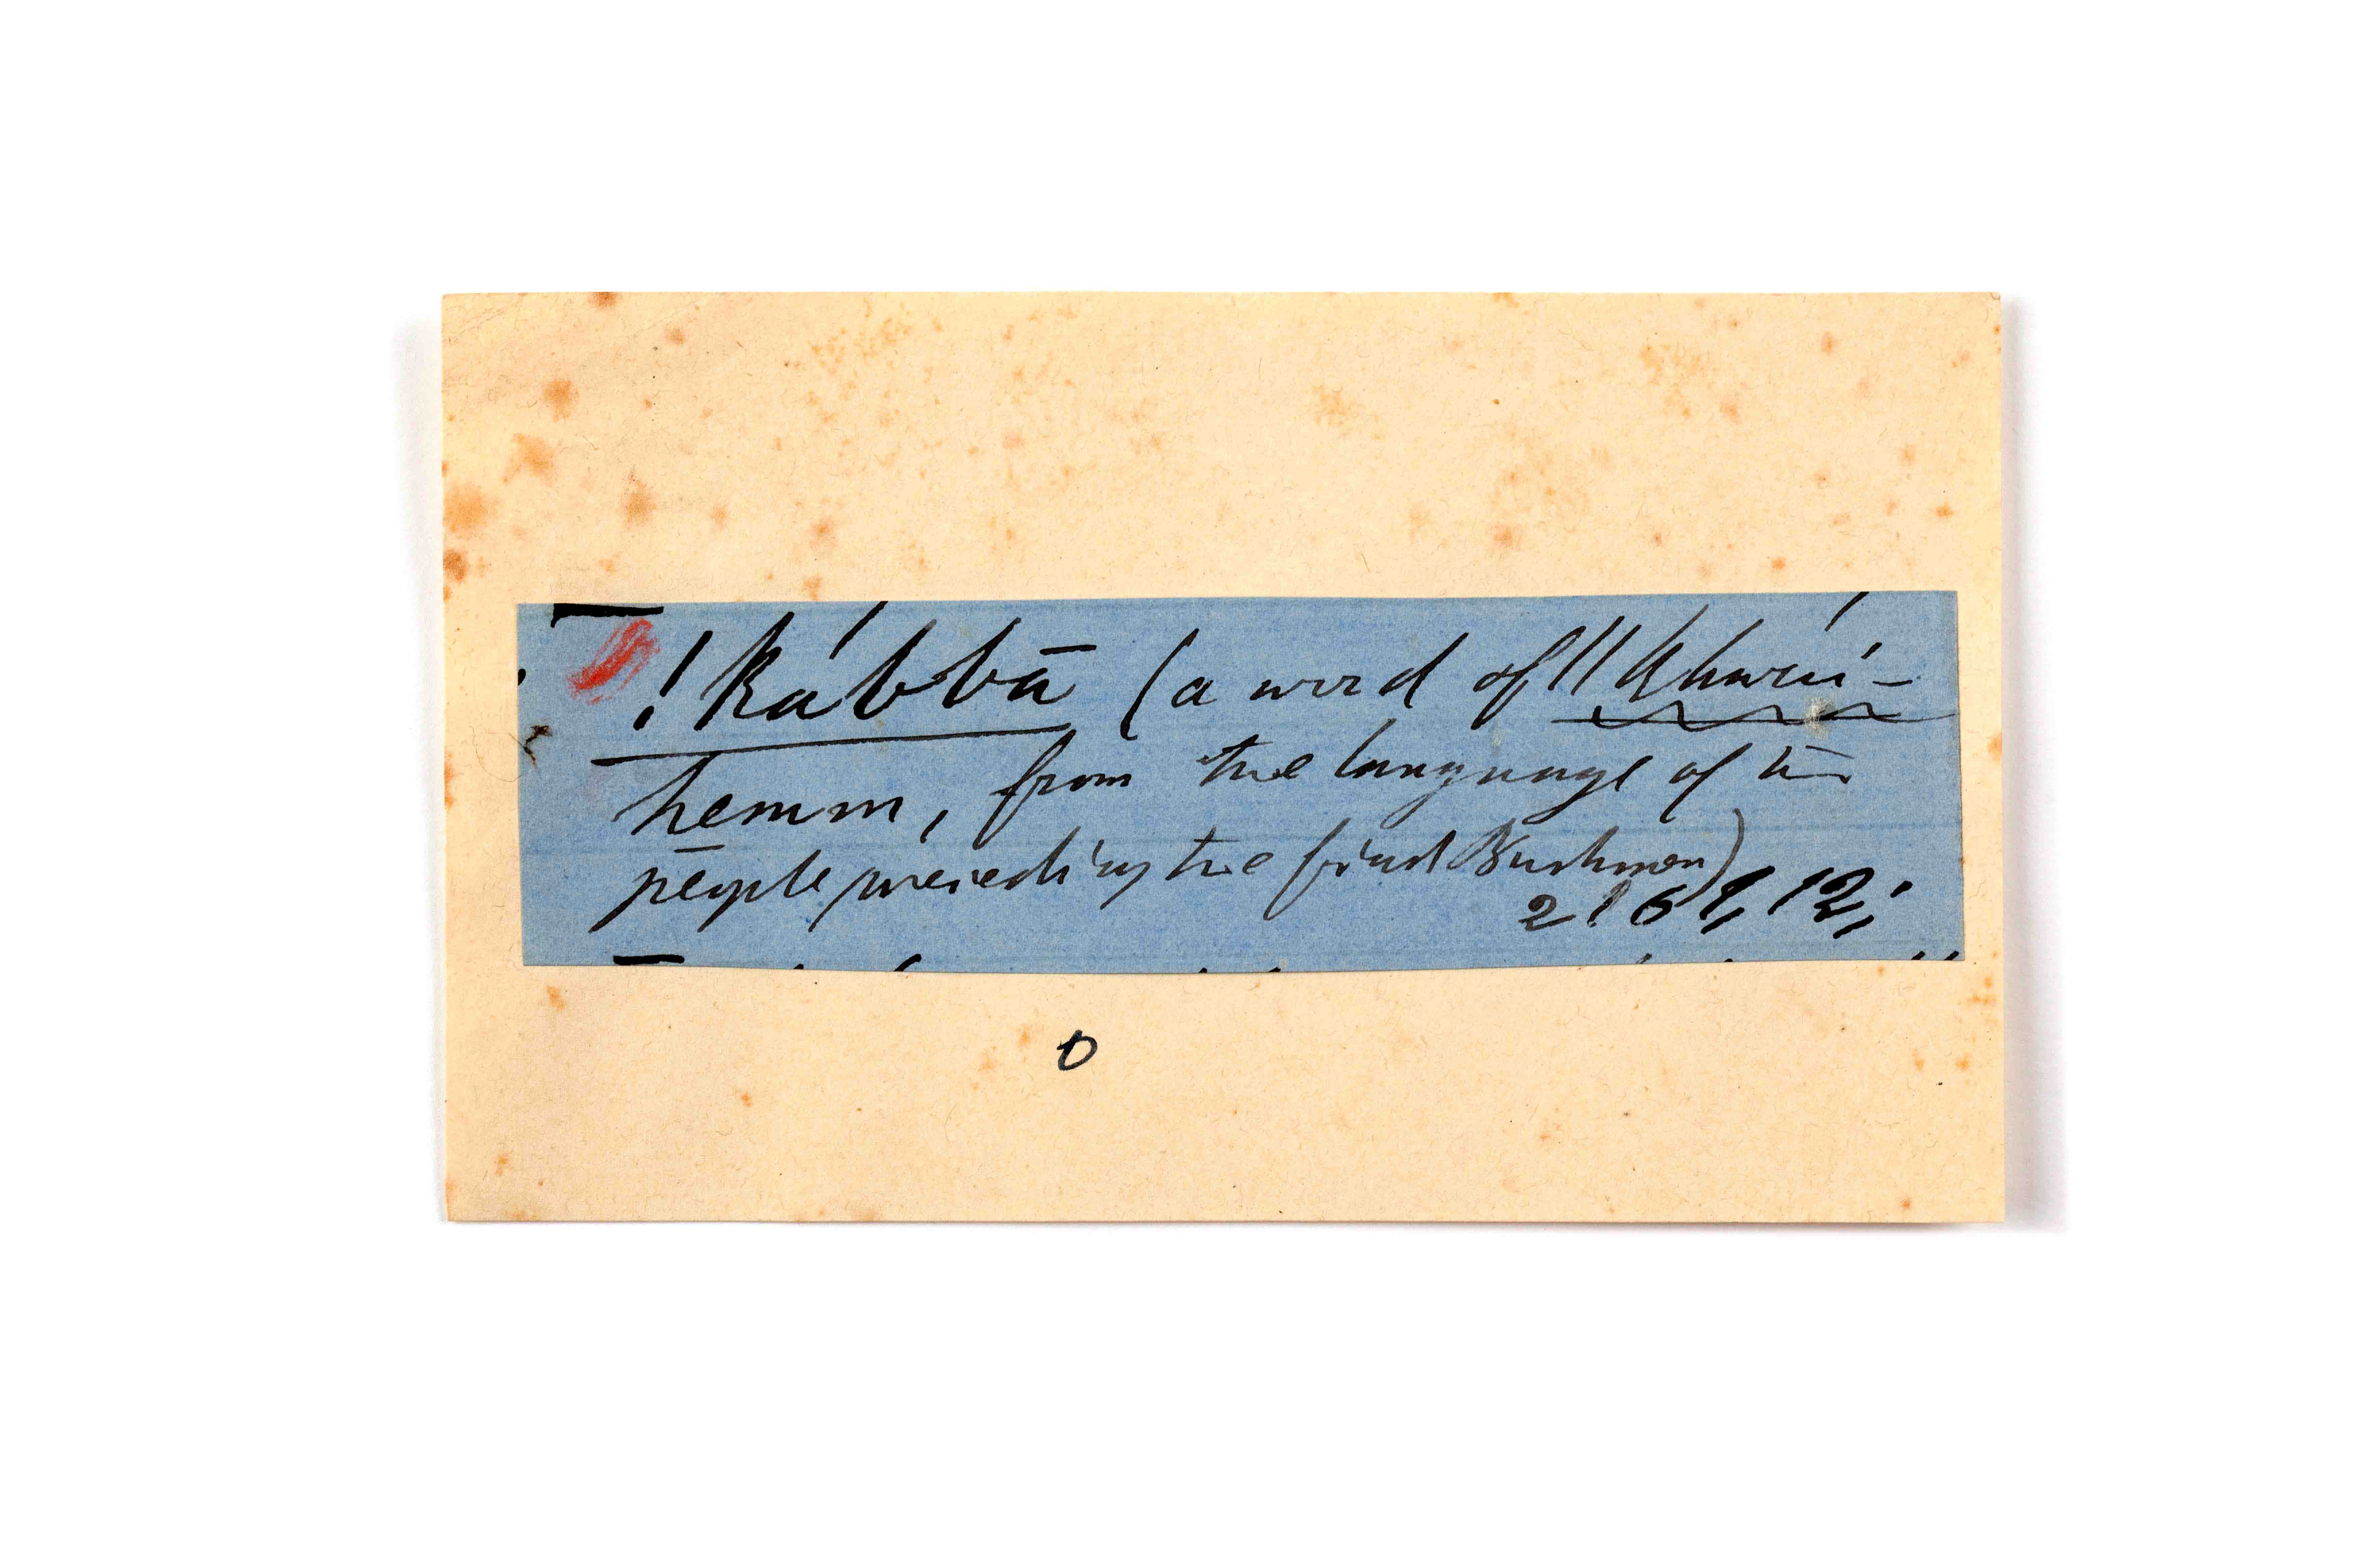 !kábbā (a word of ǁkhwái-
hemm, from the language of the
people preceding the first Bushmen)
2161, 12,
0